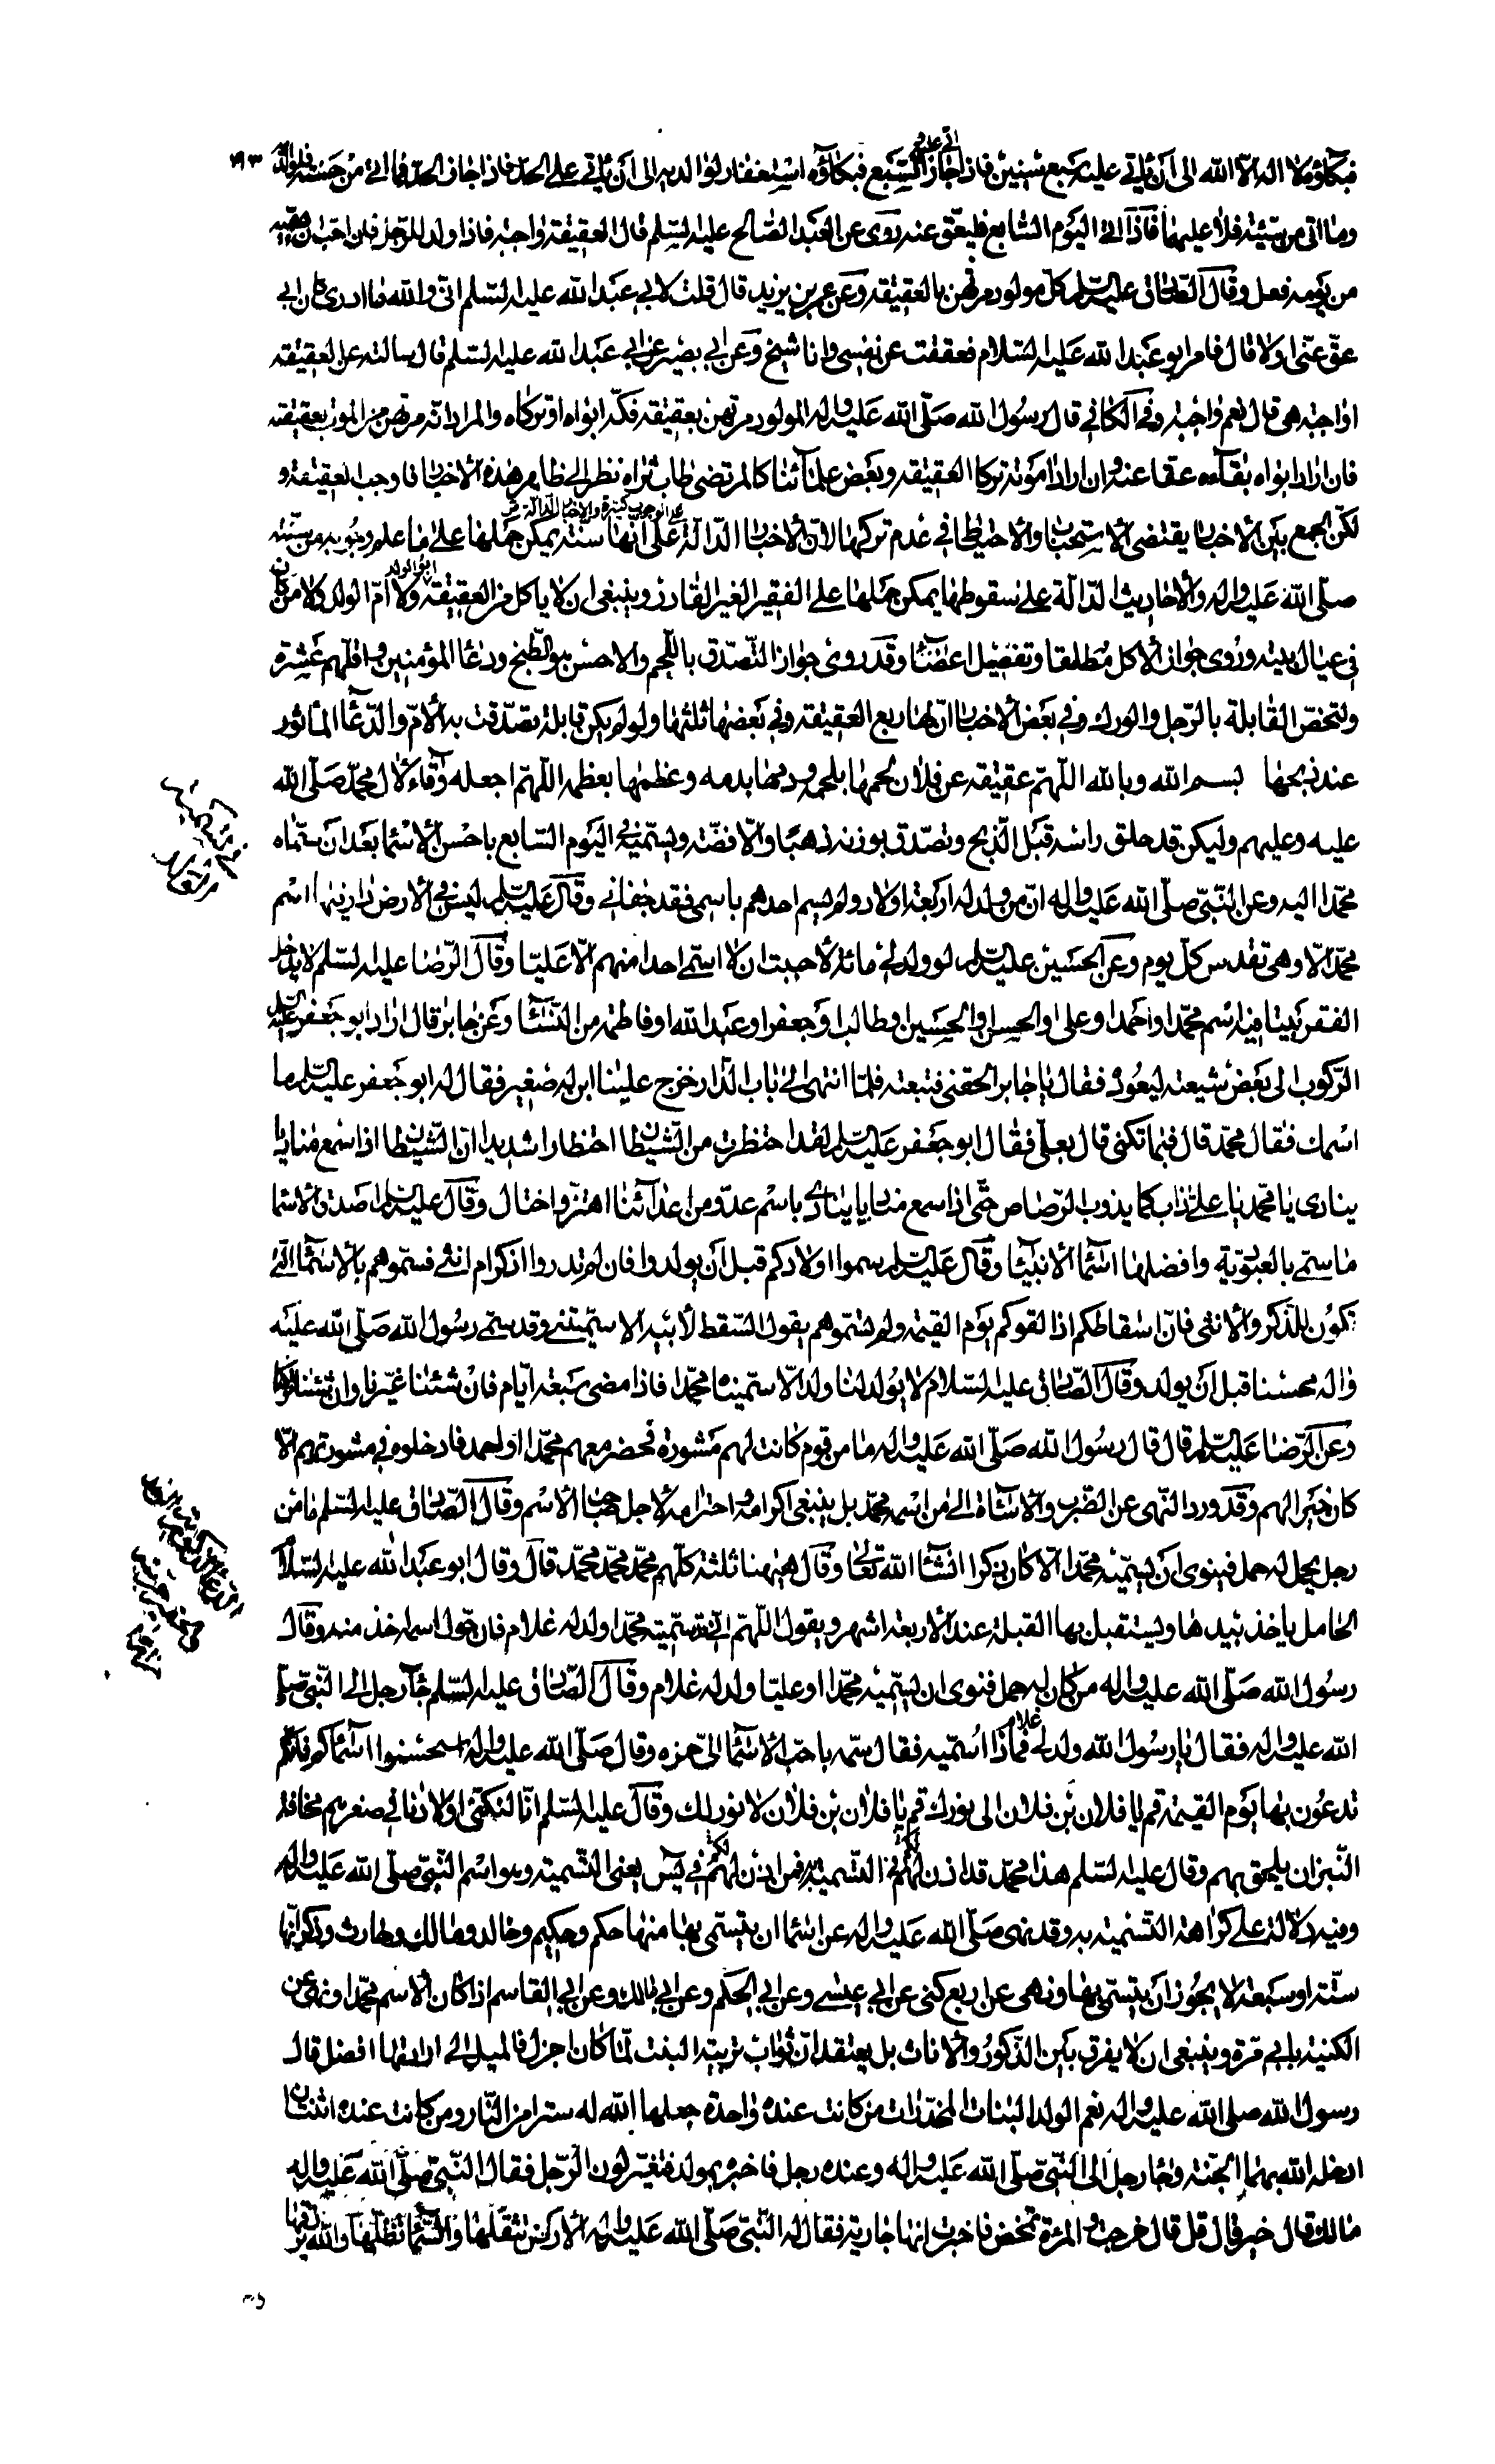 فبكاؤه لا اله الا الله الى ان ياتي عليه سبع سنين فاذا جاز السبع فبكاؤه استغفار لوالديه الى ان ياتي على الحد فاذا جاز الحد فما اتى من حسنة فلوالديه ١٩٣
وما اتى من سيئة فلا عليهما فاذا اتى اليوم السابع فليعق عنه روى عن العبد الصالح عليه السلم قال العقيقة واجبة فاذا ولد للرجل فان احب ان يسميه
من يومه فعل وقال الصادق عليه السلم كل مولود مرتهن بالعقيقة وعن عمر بن يزيد قال قلت لابي عبد الله عليه السلم اني والله ما ادري كان ابي
عق عني او لا قال فامر ابو عبد الله عليه السلام فعققت عن نفسي وانا شيخ وعن ابي بصير عن ابي عبد الله عليه السلم قال سالته عن العقيقة
اواجبة هي قال نعم واجبة وفي الكافي قال رسول الله صلى الله عليه واله المولود مرتهن بعقيقة فكه ابواه او تركاه والمراد انه مرتهن من الموت بعقيقته
فان ارادا ابواه بقاءه عقا عنه وان ارادا موته تركا العقيقة وبعض علمائنا كالمرتضى طاب ثراه نظر الى ظاهر هذه الاخبار فاوجب العقيقة و
لكن الجمع بين الاخبار يقتضى الاستحباب والاحتياط في عدم تركها لان الاخبار الدالة على الوجوب كثيرة والاخبار الدالة على انها سنة يمكن حملها على ما علم وجوبه من سنته
صلى الله عليه واله والاحاديث الدالة على سقوطها يمكن حملها على الفقير الغير القادر وينبغي ان لا ياكل من العقيقة ابو الولد ولا ام الولد ولا من كان
في عيال بيته وروى جواز الاكل مطلقا وتفصيل اعضائها وقد روى جواز التصدق باللحم والاحسن هو الطبخ ودعا المؤمنين واقلهم عشرة
وتخص القابلة بالرجل والورك وفي بعض الاخبار ان لها ربع العقيقة وفي بعضها ثلثها ولو لم يكن قابلة تصدقت به الام والدعاء الماثور
عند ذبحها بسم الله وبالله اللهم عقيقة عن فلان لحمها بلحمه ودمها بدمه وعظمها بعظمه اللهم اجعله وقاء لال محمد صلى الله
عليه وعليهم وليكن قد حلق راسه قبل الذبح وتصدق بوزنه ذهبا والا فضة ويسميه في اليوم السابع باحسن الاسماء بعد ان سماه
محمدا اليه وعن النبي صلى الله عليه واله ان من ولد له اربعة اولاد ولم يسم احدهم باسمي فقد جفاني وقال عليه السلم ليس في الارض دار فيها اسم
محمد الا وهي تقدس كل يوم وعن الحسين عليه السلم لو ولد لي مائة لاحببت ان لا اسمي احدا منهم الا عليا وقال الرضا عليه السلم لا يدخل
الفقر بيتا فيه اسم محمد او احمد او علي او الحسن او الحسين او طالب او جعفر او عبد الله او فاطمة من النساء وعن جابر قال اراد ابو جعفر عليه السلم
الركوب الى بعض شيعته ليعوده فقال يا جابر الحقني فتبعته فلما انتهى الى باب الدار خرج علينا ابن له صغير فقال له ابو جعفر عليه السلم ما
اسمك فقال محمد قال فبما تكنى قال بعلي فقال ابو جعفر عليه السلم لقد احتظرت من الشيطان احتظارا شديدا ان الشيطان اذا سمع مناديا
ينادى يا محمد يا علي ذاب كما يذوب الرصاص حتى اذا سمع مناديا ينادي باسم عدو من اعدائنا اهتز واختال وقال عليه السلم اصدق الاسماء
ما سمي بالعبودية وافضلها اسماء الانبياء وقال عليه السلم سموا اولادكم قبل ان يولدوا فان لم تدروا اذكر ام انثى فسموهم بالاسماء التي
تكون للذكر والانثى فان اسقاطكم اذا لقوكم يوم القيمة ولم تسموهم يقول السقط لابيه الا سميتني وقد سمى رسول الله صلى الله عليه
واله محسنا قبل ان يولد وقال الصادق عليه السلام لا يولد لنا ولد الا سميناه محمدا فاذا مضى سبعة ايام فان شئنا غيرنا وان شئنا تركنا
وعن الرضا عليه السلم قال قال رسول الله صلى الله عليه واله ما من قوم كانت لهم مشورة فحضر معهم محمد او احمد فادخلوه في مشورتهم الا
كان خيرا لهم وقد ورد النهى عن الضرب والاساءة الى من اسمه محمد بل ينبغي اكرامه واحترامه لاجل صاحب الاسم وقال الصادق عليه السلم ما من
رجل يحمل له حمل فينوى ان يسميه محمدا الا كان ذكرا انشاء الله تعالى وقال ههنا ثلثة كلهم محمد محمد محمد قال وقال ابو عبد الله عليه السلام
الحامل ياخذ بيدها ويستقبل بها القبلة عند الاربعة اشهر ويقول اللهم اني سميته محمدا ولد له غلام فان حول اسمه اخذ منه وقال
رسول الله صلى الله عليه واله من كان له حمل فنوى ان يسميه محمدا او عليا ولد له غلام وقال الصادق عليه السلم جاء رجل الى النبي صلى
الله عليه واله فقال يا رسول الله ولد لي غلام فماذا اسميه فقال سمه باحب الاسماء الي حمزه وقال صلى الله عليه واله استحسنوا اسمائكم فانكم
تدعون بها يوم القيمة قم يا فلان بن فلان الى نورك قم يا فلان بن فلان لا نور لك وقال عليه السلم انا لنكنى اولادنا في صغرهم مخافة
النبز ان يلحق بهم وقال عليه السلم هذا محمد قد اذن لهم في التسمية به فمن اذن لهم في يس يعنى التسمية وهو اسم النبي صلى الله عليه واله
وفيه دلالة على كراهة التسمية به وقد نهى صلى الله عليه واله عن اسماء ان يتسمى بها منها حكم وحكيم وخالد ومالك وحارث وذكر انها
ستة او سبعة لا يجوز ان يتسمى بها ونهى عن اربع كنى عن ابي عيسى وعن ابي الحكم وعن ابي مالك وعن ابي القاسم اذا كان الاسم محمدا ونهى عن
الكنية بابي مرة وينبغي ان لا يفرق بين الذكور والاناث بل يعتقد ان ثواب تربية البنت لما كان اجزل فالميل الى ارادتها افضل قال
رسول الله صلى الله عليه واله نعم الولد البنات المخدرات من كانت عنده واحدة جعلها الله له سترا من النار ومن كانت عنده اثنتان
ادخله الله بهما الجنة وجاء رجل الى النبي صلى الله عليه واله وعنده رجل فاخبره بمولد فتغير لون الرجل فقال النبي صلى الله عليه واله
مالك قال خير قال قل قال خرجت والمرئة تمخض فاخبرت انها جارية فقال له النبي صلى الله عليه واله الارض تقلها والسماء تظلها والله يرزقها